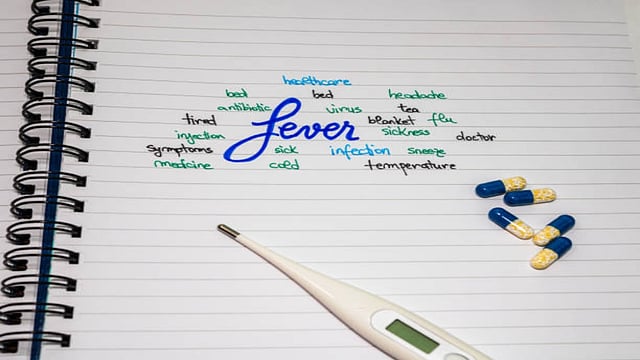 healthcare
bed bed headache
antibiotic virus tea
tired fever blanket flu
injection sickness doctor
symptoms sick infection sneeze
medicine cold temperature